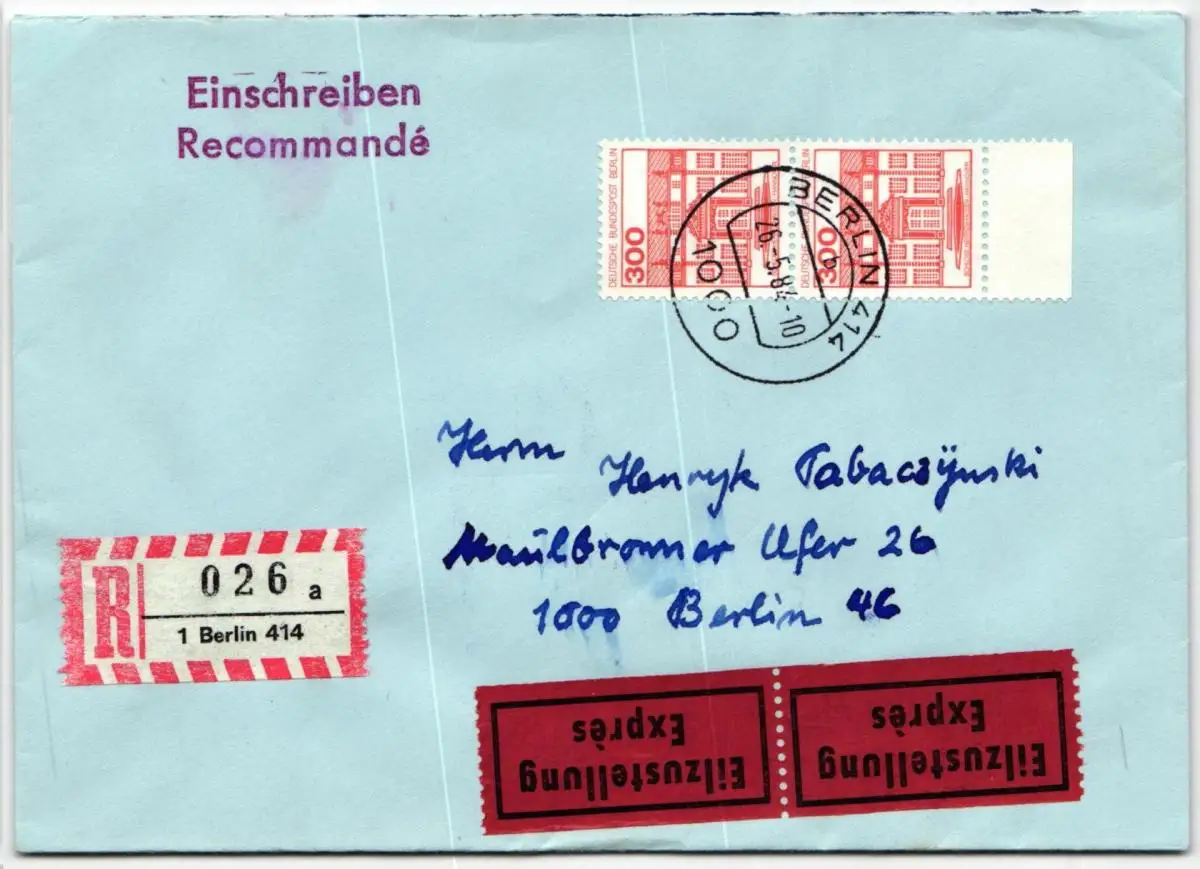 Einschreiben
Recommandé
DEUTSCHE BUNDESPOST BERLIN
300
300
BERLIN 414
b
26.-5.84-10
1000
Herrn
Henryk Tabaczÿnski
Maulbronner Ufer 26
1000 Berlin 46
R
026 a
1 Berlin 414
Eilzustellung
Exprès
Eilzustellung
Exprès